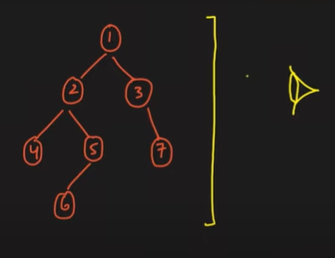 1
2 3
4 5 7
6